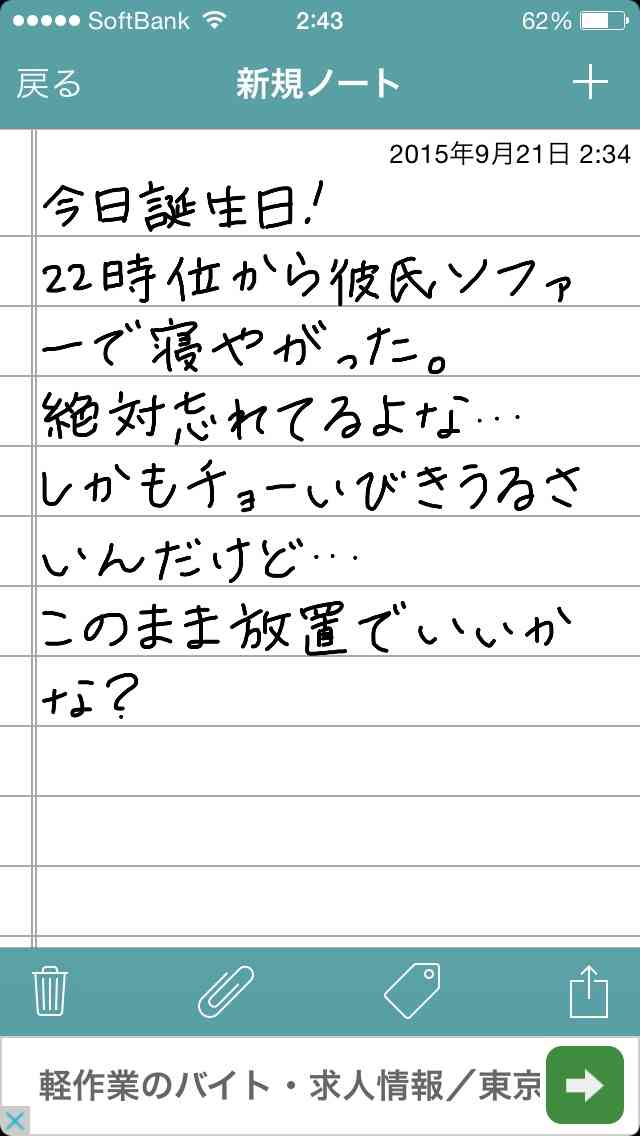 SoftBank 2:43 62%
戻る 新規ノート
2015年9月21日 2:34
今日誕生日!
22時位から彼氏ソファ
ーで寝やがった。
絶対忘れてるよな…
しかもチョーいびきうるさ
いんだけど…
このまま放置でいいか
な?
軽作業のバイト・求人情報／東京